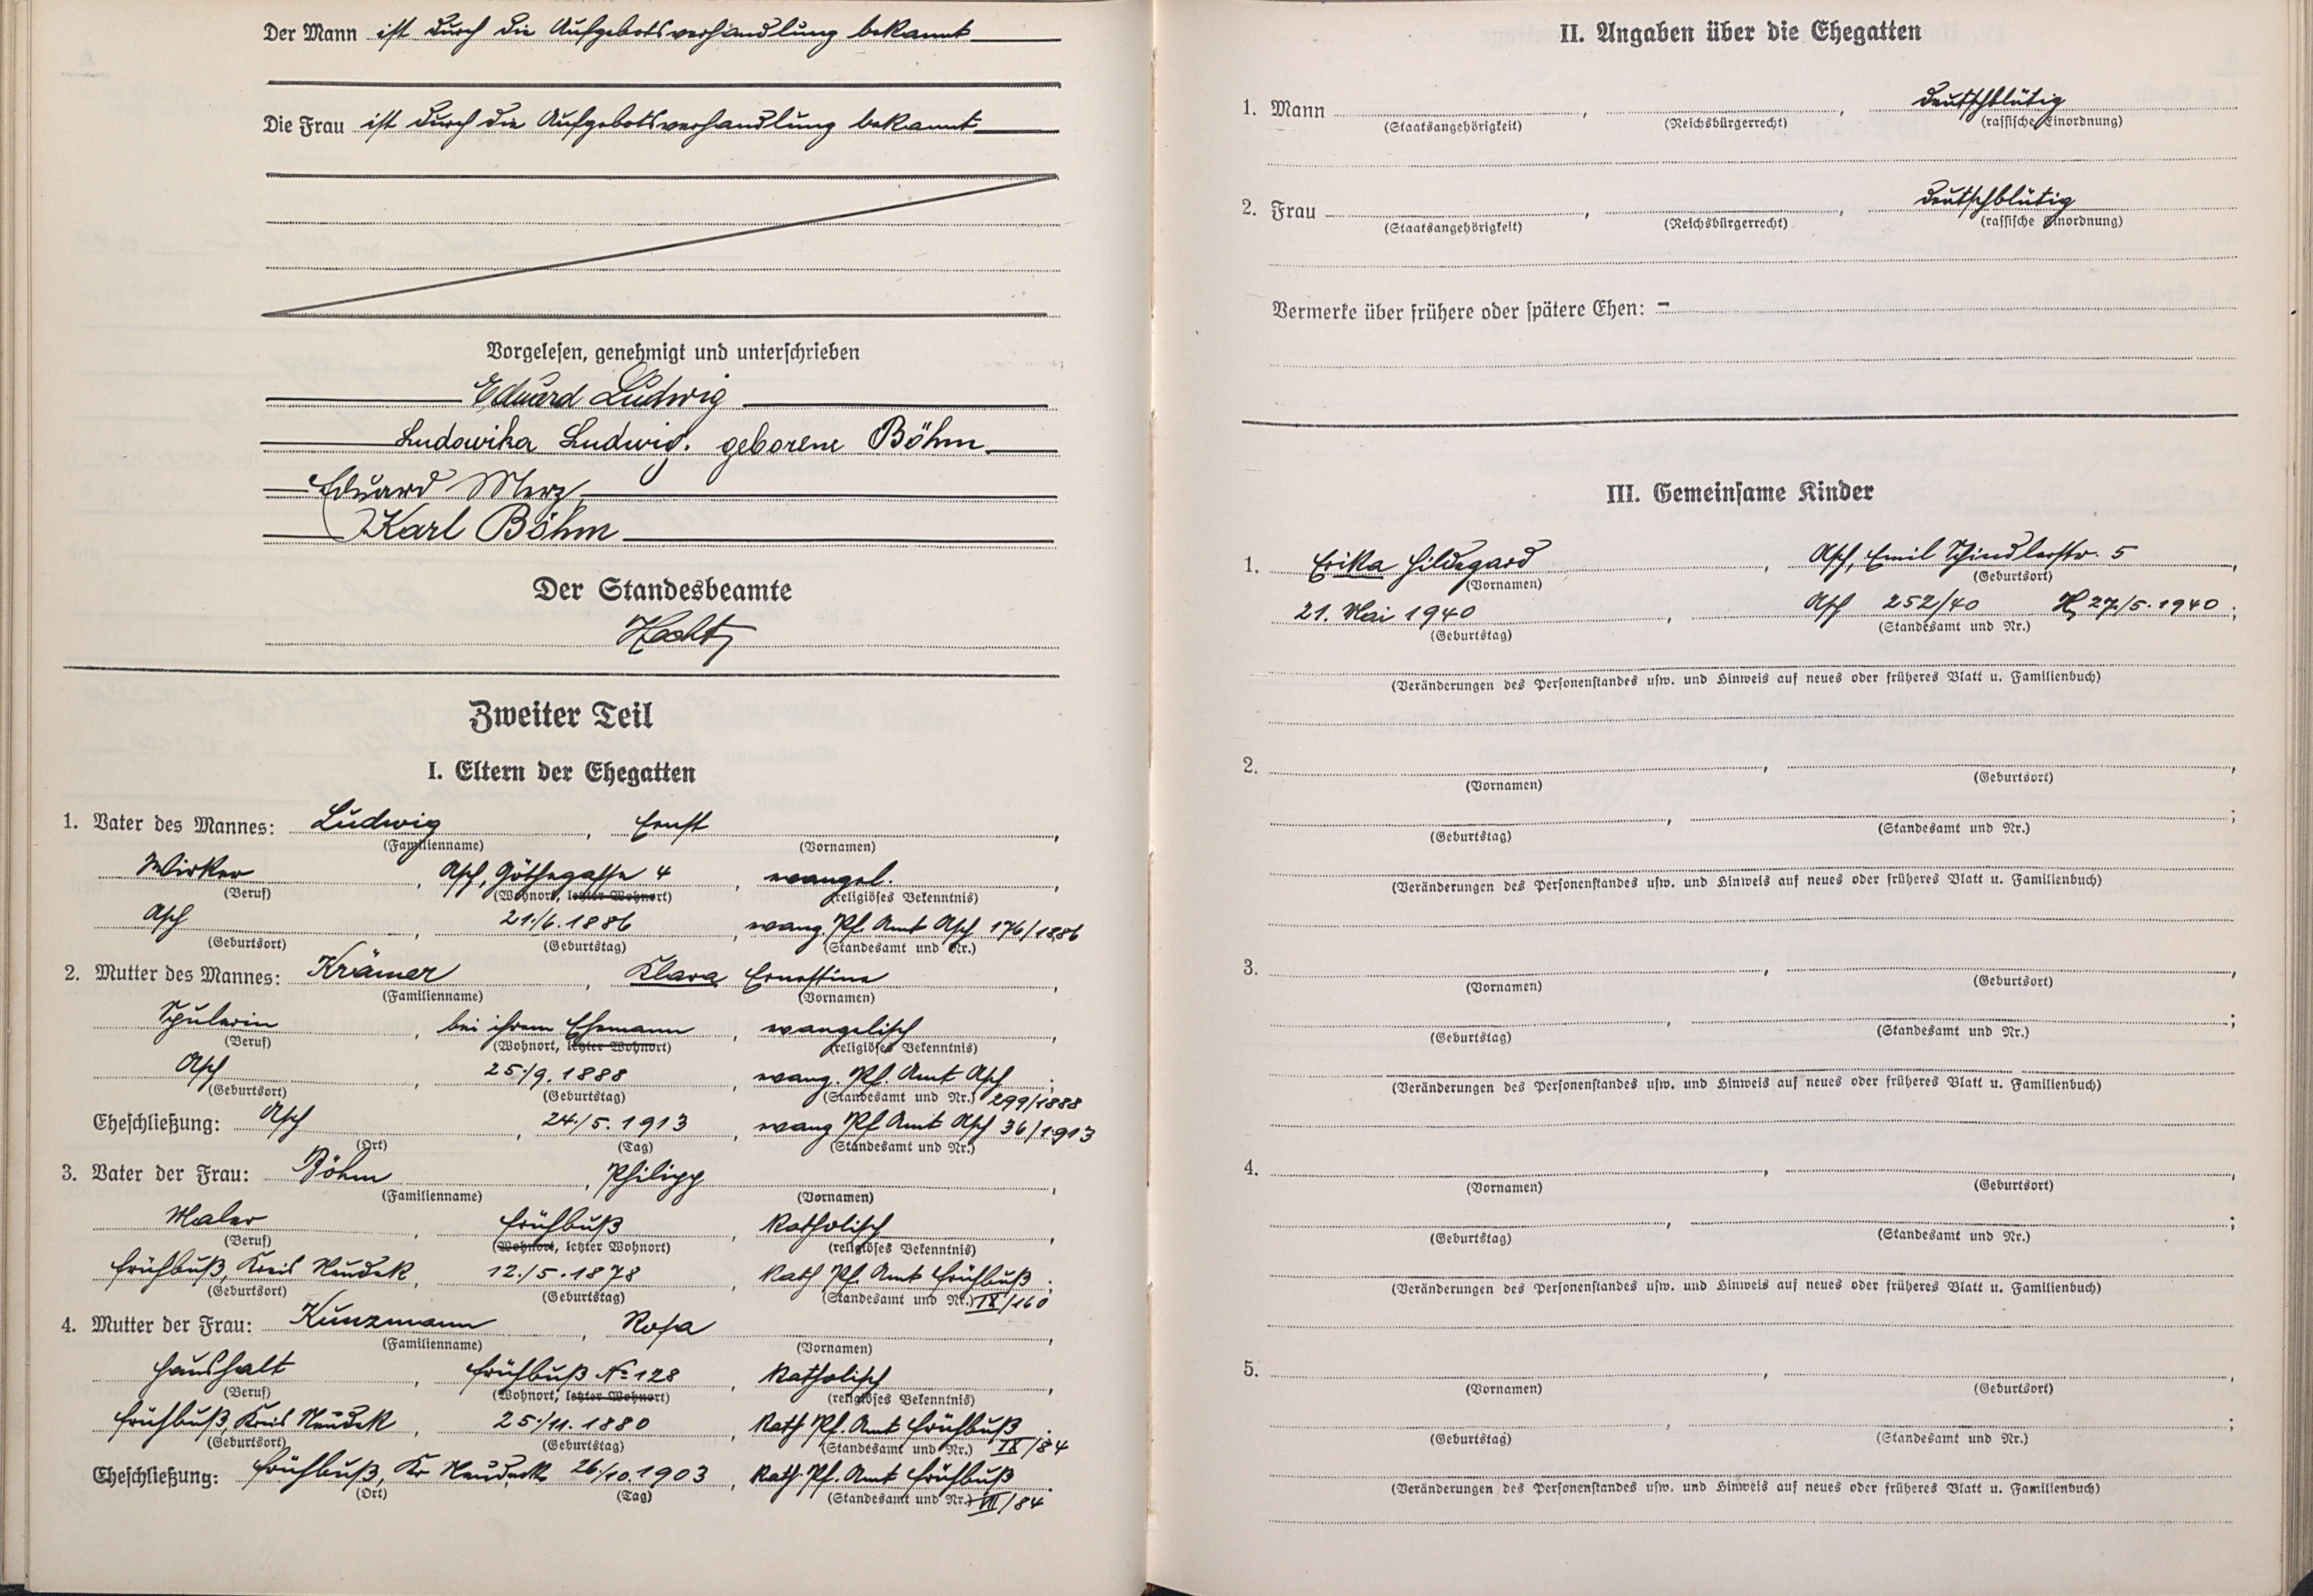 Der Mann ist durch die Aufgebotsverhandlung bekannt
Die Frau ist durch die Aufgebotsverhandlung bekannt
Vorgelesen, genehmigt und unterschrieben
Eduard Ludwig
Ludowika Ludwig. geborene Böhm
Eduard Merz
Karl Böhm
Der Standesbeamte
Zweiter Teil
I. Eltern der Ehegatten
1. Vater des Mannes: Ludwig, Ernst
(Familienname) (Vornamen)
Wirker, Asch, Göthegasse 4, evangel.,
(Beruf) (Wohnort, letzter Wohnort) (religiöses Bekenntnis)
Asch, 21./6.1886, evang. Pf. Amt Asch 176/1886
(Geburtsort) (Geburtstag) (Standesamt und Nr.)
2. Mutter des Mannes: Krämer, Klara Ernestine,
(Familienname) (Vornamen)
Spulerin, bei ihrem Ehemann, evangelisch,
(Beruf) (Wohnort, letzter Wohnort) (religiöses Bekenntnis)
Asch, 25./9.1888, evang. Pf. Amt Asch;
(Geburtsort) (Geburtstag) (Standesamt und Nr.) 299/1888
Eheschließung: Asch, 24./5.1913, evang Pf Amt Asch 36/1913
(Ort) (Tag) (Standesamt und Nr.)
3. Vater der Frau: Böhm, Philipp,
(Familienname) (Vornamen)
Maler, Frühbuß, katholisch,
(Beruf) (Wohnort, letzter Wohnort) (religiöses Bekenntnis)
Frühbuß, Kreis Neudek, 12./5.1878, kath Pf. Amt Frühbuß;
(Geburtsort) (Geburtstag) (Standesamt und Nr.) IX/160
4. Mutter der Frau: Kunzmann, Rosa,
(Familienname) (Vornamen)
Haushalt, Frühbuß No 128, katholisch,
(Beruf) (Wohnort, letzter Wohnort) (religiöses Bekenntnis)
Frühbuß, Kreis Neudek, 25./11.1880, kath Pf. Amt Frühbuß;
(Geburtsort) (Geburtstag) (Standesamt und Nr.) IX/84
Eheschließung: Frühbuß, Kr Neudek 26./10.1903, kath. Pf. Amt Frühbuß.
(Ort) (Tag) (Standesamt und Nr.) VII/84
II. Angaben über die Ehegatten
1. Mann, , deutschblütig
(Staatsangehörigkeit) (Reichsbürgerrecht) (rassische Einordnung)
2. Frau, , deutschblütig
(Staatsangehörigkeit) (Reichsbürgerrecht) (rassische Einordnung)
Vermerke über frühere oder spätere Ehen: –
III. Gemeinsame Kinder
1. Erika Hildegard, Asch, Emil Schindlerstr. 5,
(Vornamen) (Geburtsort)
21. Mai 1940, Asch 252/40 27/5.1940;
(Geburtstag) (Standesamt und Nr.)
(Veränderungen des Personenstandes usw. und Hinweis auf neues oder früheres Blatt u. Familienbuch)
2. , ,
(Vornamen) (Geburtsort)
, ;
(Geburtstag) (Standesamt und Nr.)
(Veränderungen des Personenstandes usw. und Hinweis auf neues oder früheres Blatt u. Familienbuch)
3. , ,
(Vornamen) (Geburtsort)
, ;
(Geburtstag) (Standesamt und Nr.)
(Veränderungen des Personenstandes usw. und Hinweis auf neues oder früheres Blatt u. Familienbuch)
4. , ,
(Vornamen) (Geburtsort)
, ;
(Geburtstag) (Standesamt und Nr.)
(Veränderungen des Personenstandes usw. und Hinweis auf neues oder früheres Blatt u. Familienbuch)
5. , ,
(Vornamen) (Geburtsort)
, ;
(Geburtstag) (Standesamt und Nr.)
(Veränderungen des Personenstandes usw. und Hinweis auf neues oder früheres Blatt u. Familienbuch)